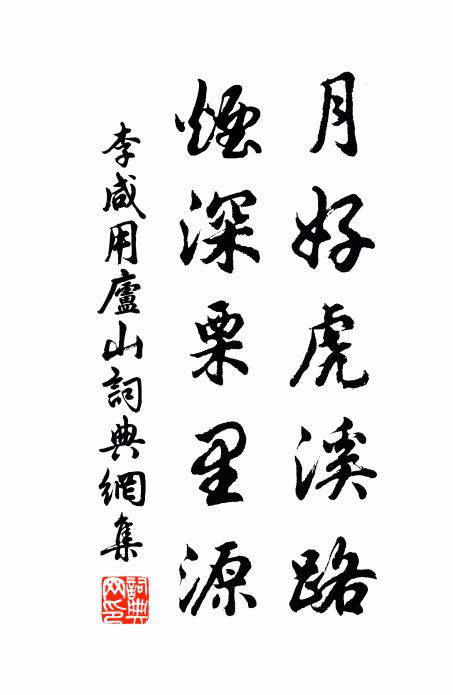 月好虎溪路
煙深栗里源
李咸用廬山詞典網集
詞典網印